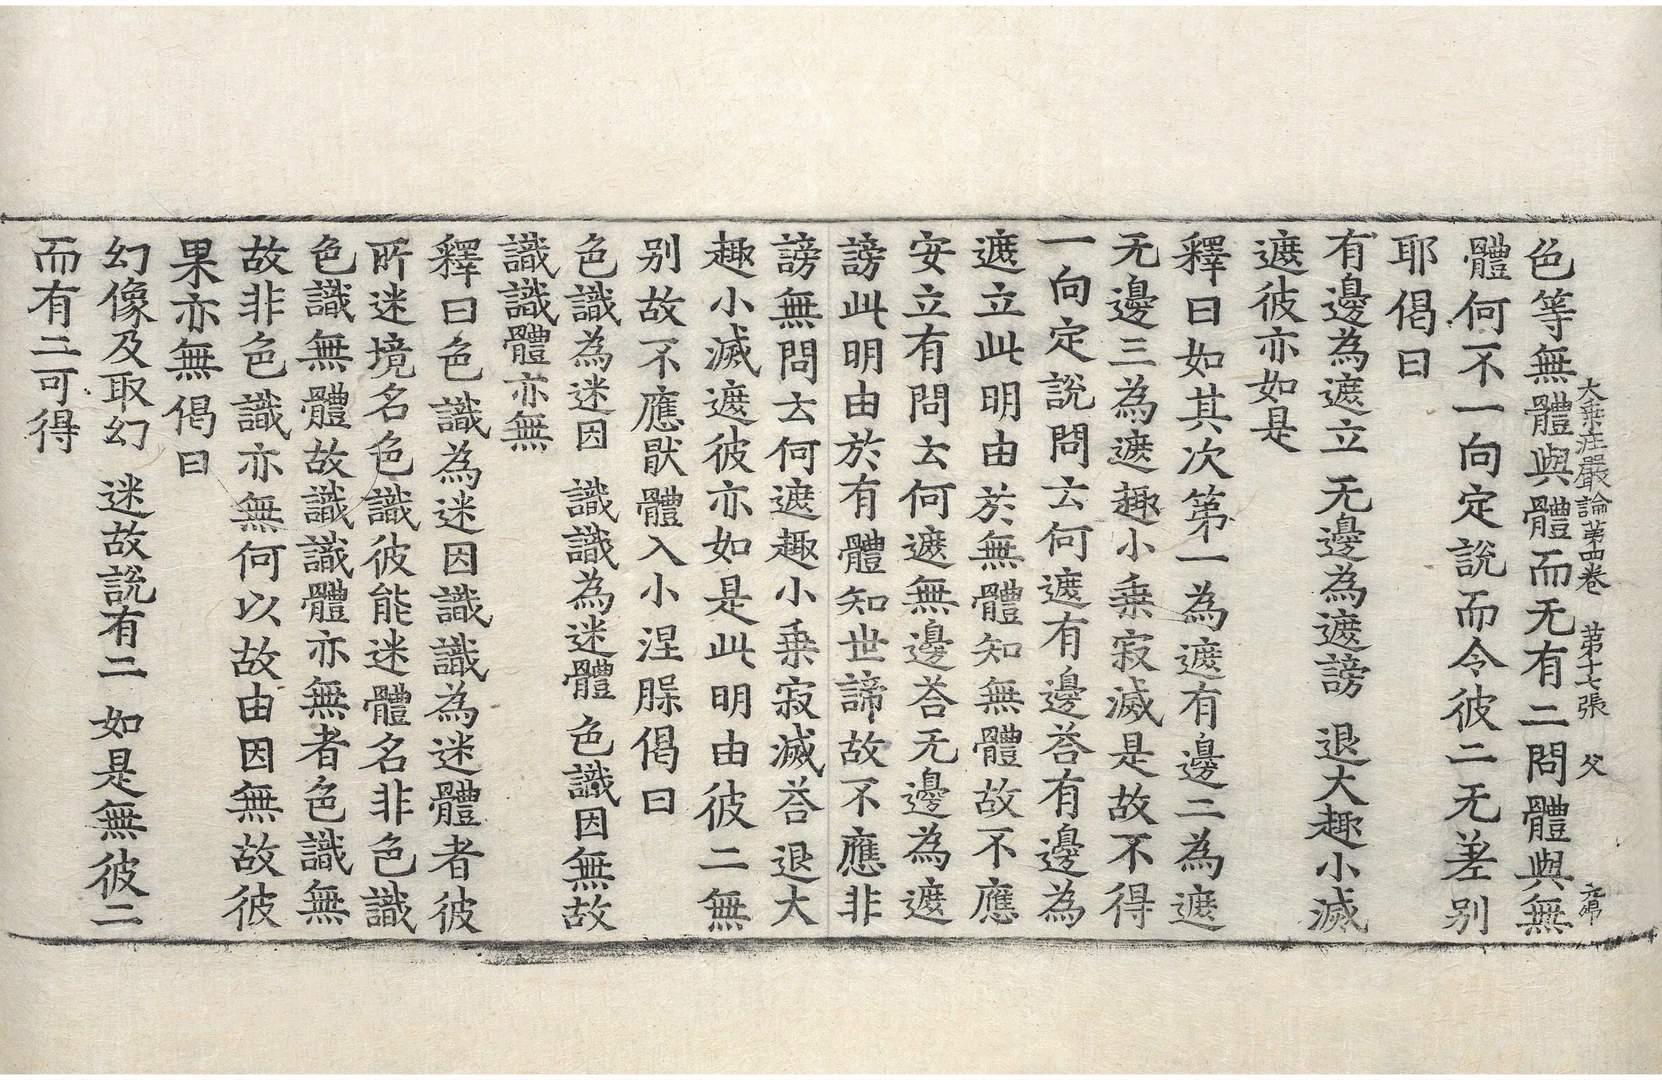 大乗荘嚴論第四卷 第十七張 父
色等無體與體而无有二問體與無
體何不一向定說而令彼二无差别
耶偈曰
有邊為遮立 无邊為遮謗 退大趣小滅
遮彼亦如是
釋曰如其次第一為遮有邊二為遮
无邊三為遮趣小乗寂滅是故不得
一向定說問云何遮有邊荅有邊為
遮立此明由於無體知無體故不應
安立有問云何遮無邊荅无邊為遮
謗此明由於有體知世諦故不應非
謗無問云何遮趣小乗寂滅荅退大
趣小滅遮彼亦如是此明由彼二無
别故不應猒體入小涅槃偈曰
色識為迷因 識識為迷體 色識因無故
識識體亦無
釋曰色識為迷因識識為迷體者彼
所迷境名色識彼能迷體名非色識
色識無體故識識體亦無者色識無
故非色識亦無何以故由因無故彼
果亦無偈曰
幻像及取幻 迷故說有二 如是無彼二
而有二可得